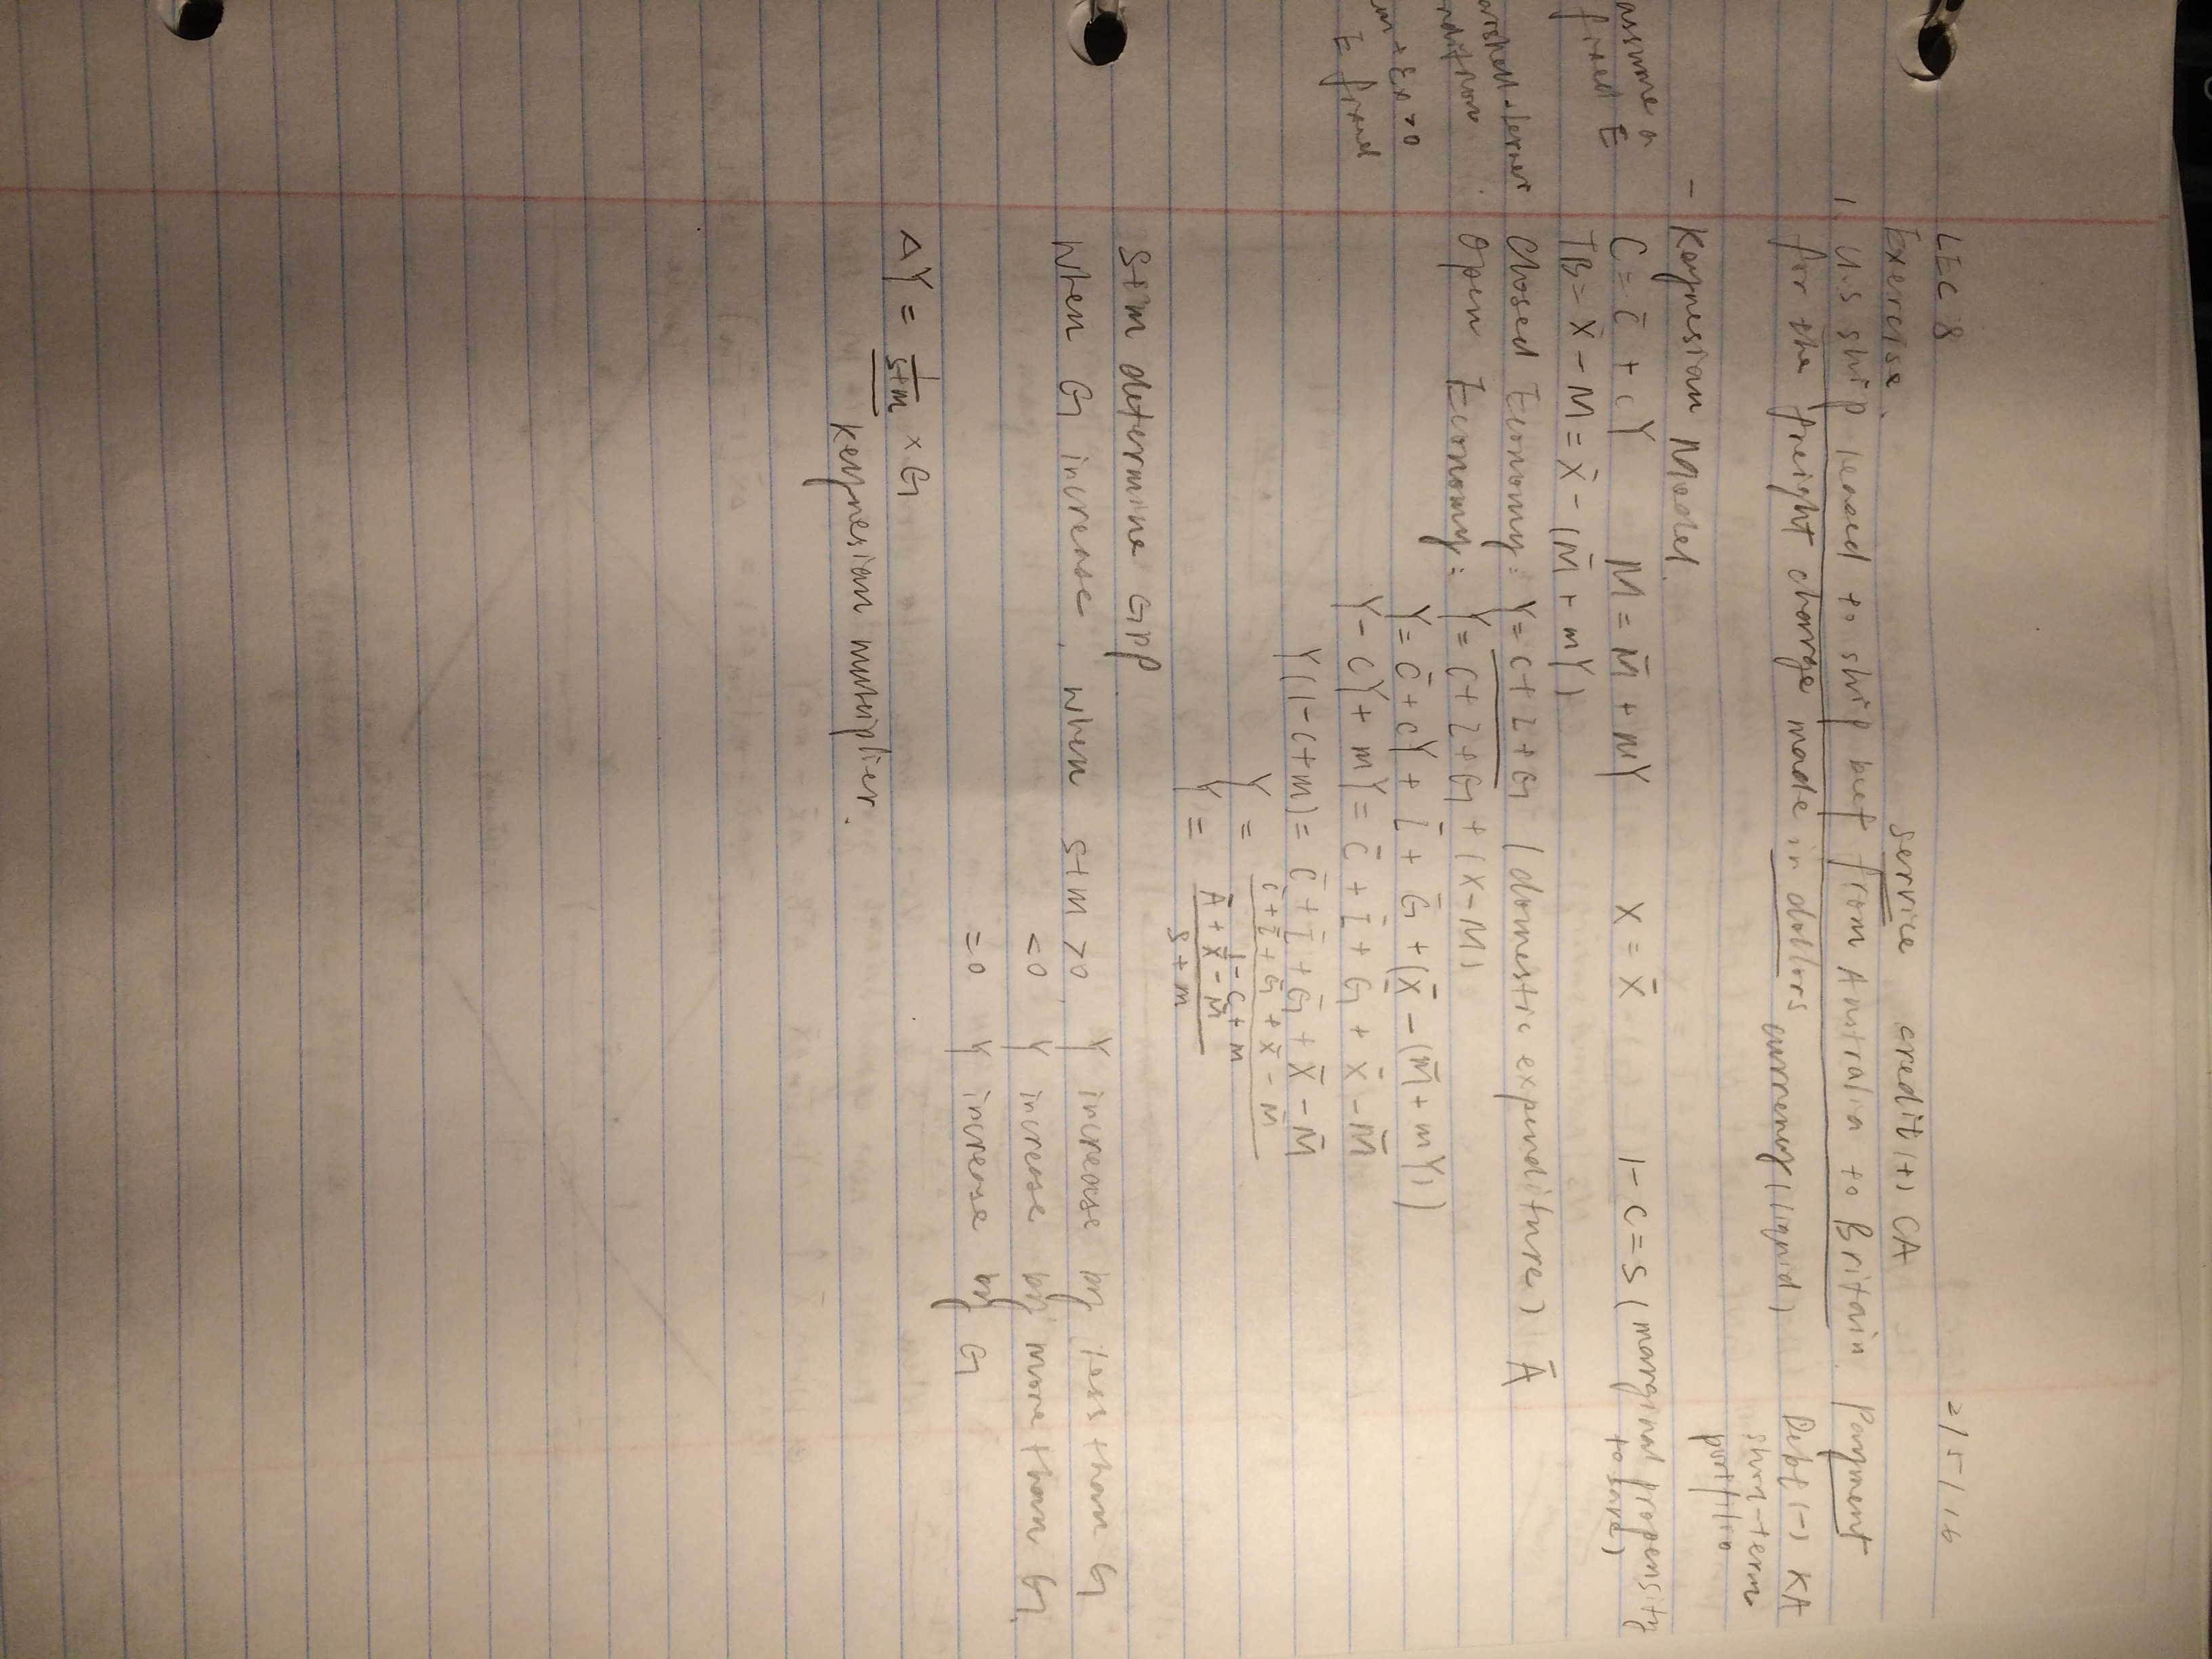 LEC 8 2/5/16
Exercise. service credit(+) CA
1. U.S ship leaned to ship beef from Australia to Britain. Payment
for the freight charge made in dollars Debt(-) KA
currency(liquid) short-term
portfilio
- Keynesian Model.
assume a
fixed E
C = C̄ + cY M = M̄ + mY X = X̄ 1-C=S (marginal propensity
to save)
TB = X̄ - M = X̄ - (M̄ + mY)
Closed Economy: Y = C+I+G (domestic expenditure) Ā
Open Economy: Y = C+I+G + (X-M)
Y = C̄ + cY + Ī + Ḡ + (X̄ - (M̄ + mY))
E fixed
Y - CY + mY = C̄ + Ī + Ḡ + X̄ - M̄
Y(1-C+m) = C̄ + Ī + Ḡ + X̄ - M̄
Y = C̄ + Ī + Ḡ + X̄ - M̄
1-C+m
Y = Ā + X̄ - M̄
S+m
S+m determine GDP
When G increase, when S+m >0, Y increase by less than G
<0 Y increase by more than G,
=0 Y increase by G
ΔY = 1/S+m × G
Keynesian mutiplier.